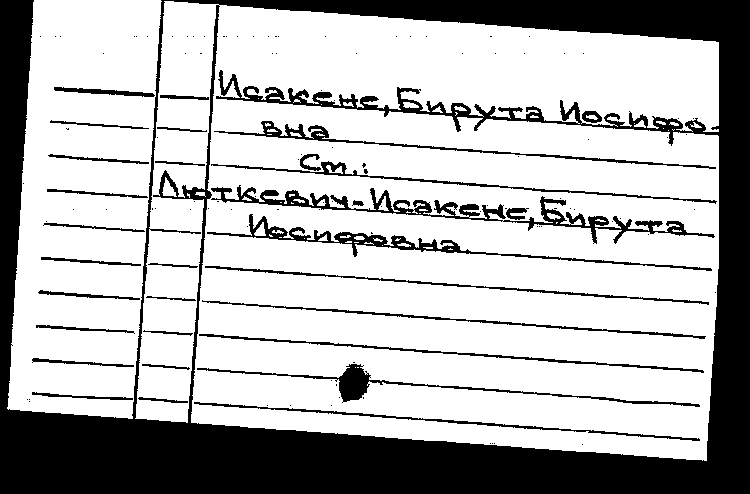 Исакене, Бирута Иосифо-
вна
Ст.:
Люткевич-Исакене, Бирута
Иосифовна.